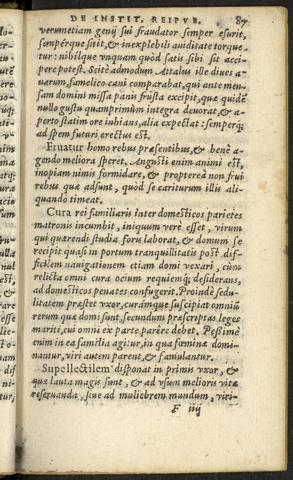 DE INSTIT. REIPVB. 87
verumetiam genij sui fraudator semper esurit,
sempérque sitit, & inexplebili auiditate torque-
tur: nihilque vnquam quod satis sibi sit acci-
pere potest. Scitè admodum Attalus ille diues a-
uarum, famelico cani comparabat, qui ante men-
sam domini missa panis frusta excipit, quæ quidē
nullo gustu quamprimùm integra deuorat, & a-
perto statim ore inhians, alia expectat: semperq;
ad spem futuri erectus est.
Fruatur homo rebus præsentibus, & benè a-
gendo meliora speret. Angusti enim animi est,
inopiam nimis formidare, & proptereà non frui
rebus quæ adsunt, quod se cariturum illis ali-
quando timeat.
Cura rei familiaris inter domesticos parietes
matronis incumbit, iniquum verè esset, virum
qui quærendi studia foru laborat, & domum se
recipit quasi in portum tranquillitatis post dif-
ficilem nauigationem etiam domi vexari, cùm
relicta omni cura ocium requiemq; desiderans,
ad domesticos penates confugerit. Proinde sedu-
litatem præstet vxor, curámque suscipiat omniū
rerum quæ domi sunt, secundum præscriptas leges
mariti, cui omni ex parte parêre debet. Peßimè
enim in ea familia agitur, in qua fœminæ domi-
nantur, viri autem parent, & famulantur.
Supellectilem disponat in primis vxor, &
quæ lauta magis sunt, & ad vsum melioris vitæ
reseruanda, siue ad muliebrem mundum, viri-
F iiij